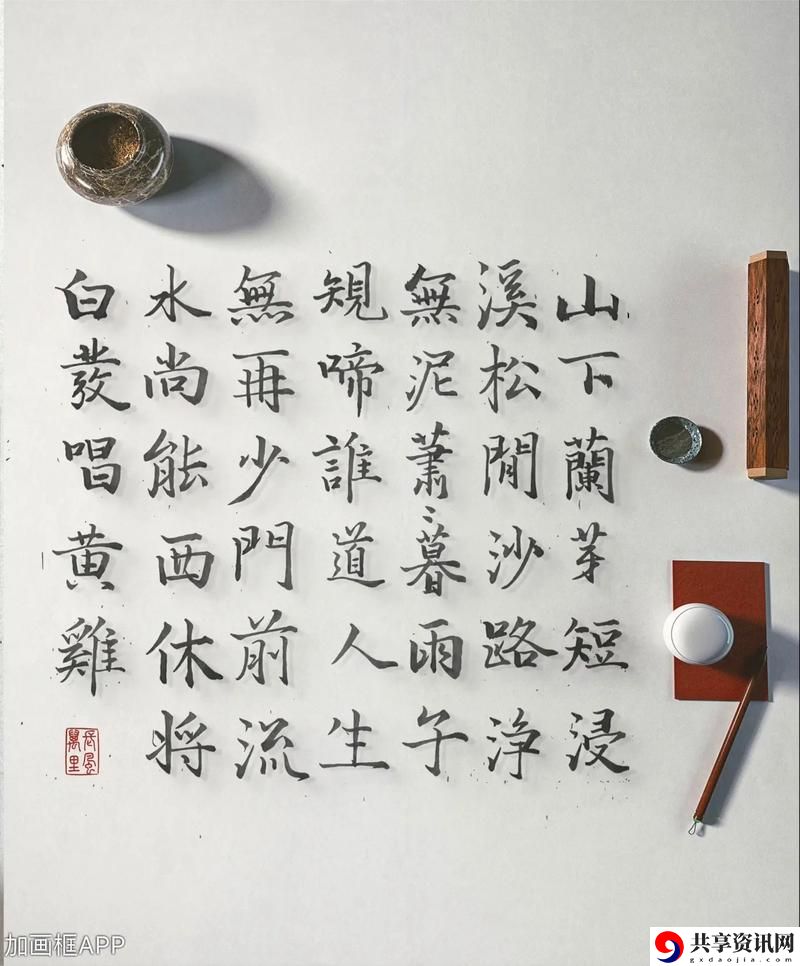 山下蘭芽短浸
溪松閒沙路淨
無泥蕭〻暮雨子
規啼誰道人生
無再少門前流
水尚能西休將
白發唱黄雞
長風
萬里
加画框APP
共享资讯网
gxdaojia.com